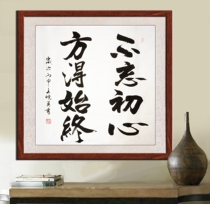 不忘初心
方得始終